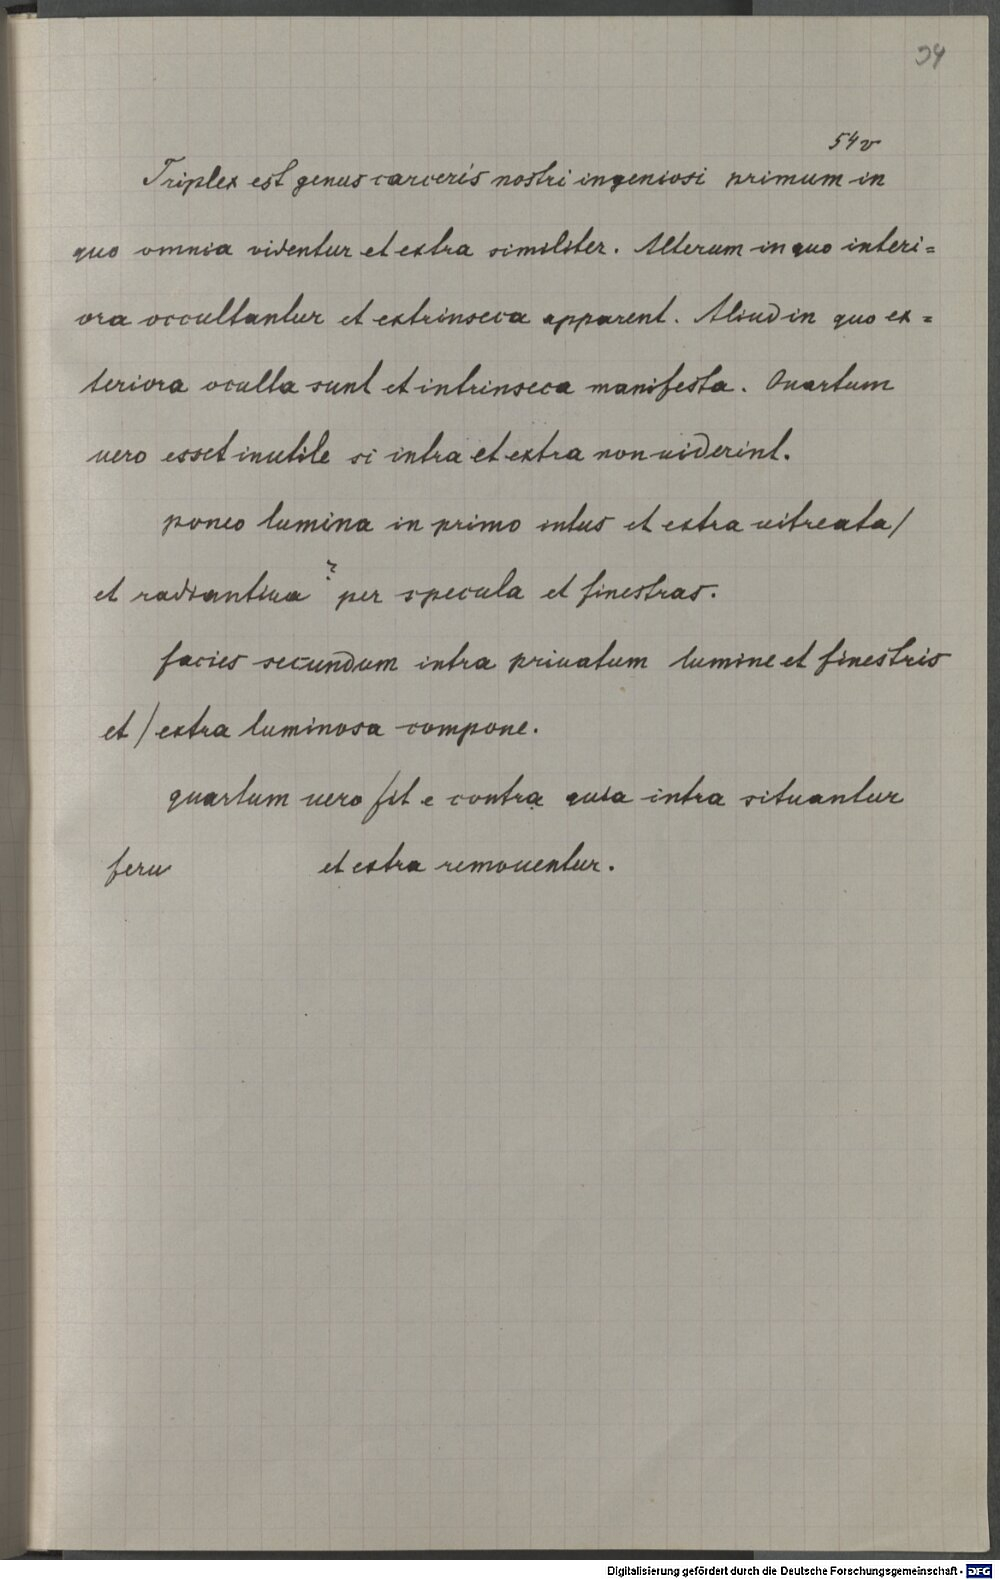 34
54v
Triplex est genus carceris nostri ingeniosi primum in
quo omnia videntur et extra similiter. Alterum in quo interi=
ora occultantur et extrinseca apparent. Aliud in quo ex=
teriora oculta sunt et intrinseca manifesta. Quartum
uero esset inutile si intra et extra non uiderint.
poneo lumina in primo intus et extra uitreata/
et radiantiua ? per specula et finestras.
facies secundum intra priuatum lumine et finestris
et / extra luminosa compone.
quartum uero fit e contra quia intra situantur
feru et extra remouentur.
Digitalisierung gefördert durch die Deutsche Forschungsgemeinschaft - DFG